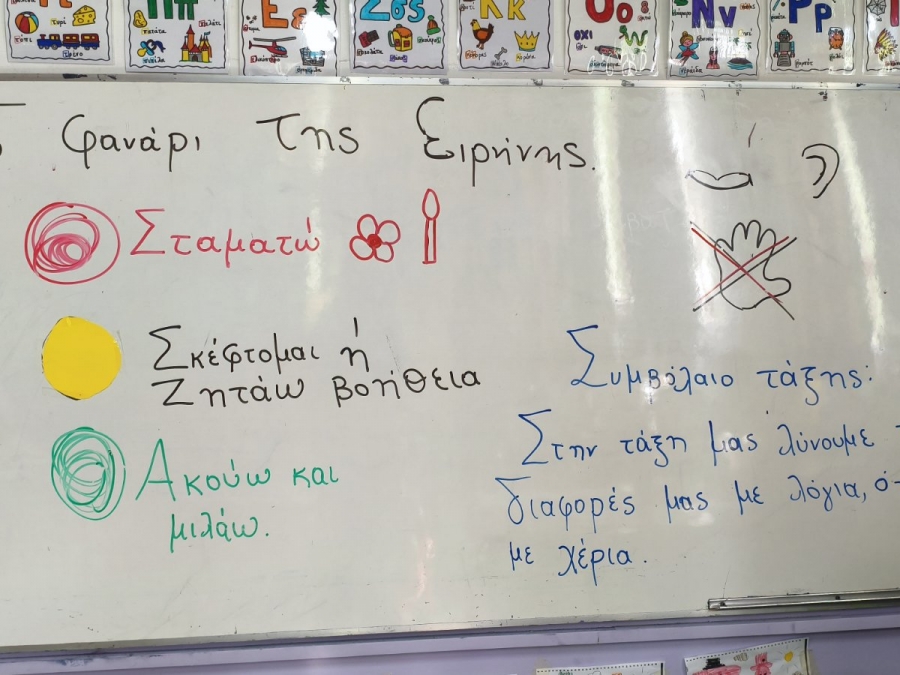 Ππ
Εε
Ζσς
Κκ
Οο
Νν
Ρρ
όχι
φανάρι της Ειρήνης.
Σταματώ
Σκέφτομαι ή
Ζητάω βοήθεια
Ακούω και
μιλάω.
Συμβόλαιο τάξης:
Στην τάξη μας λύνουμε
διαφορές μας με λόγια, ό-
με χέρια.